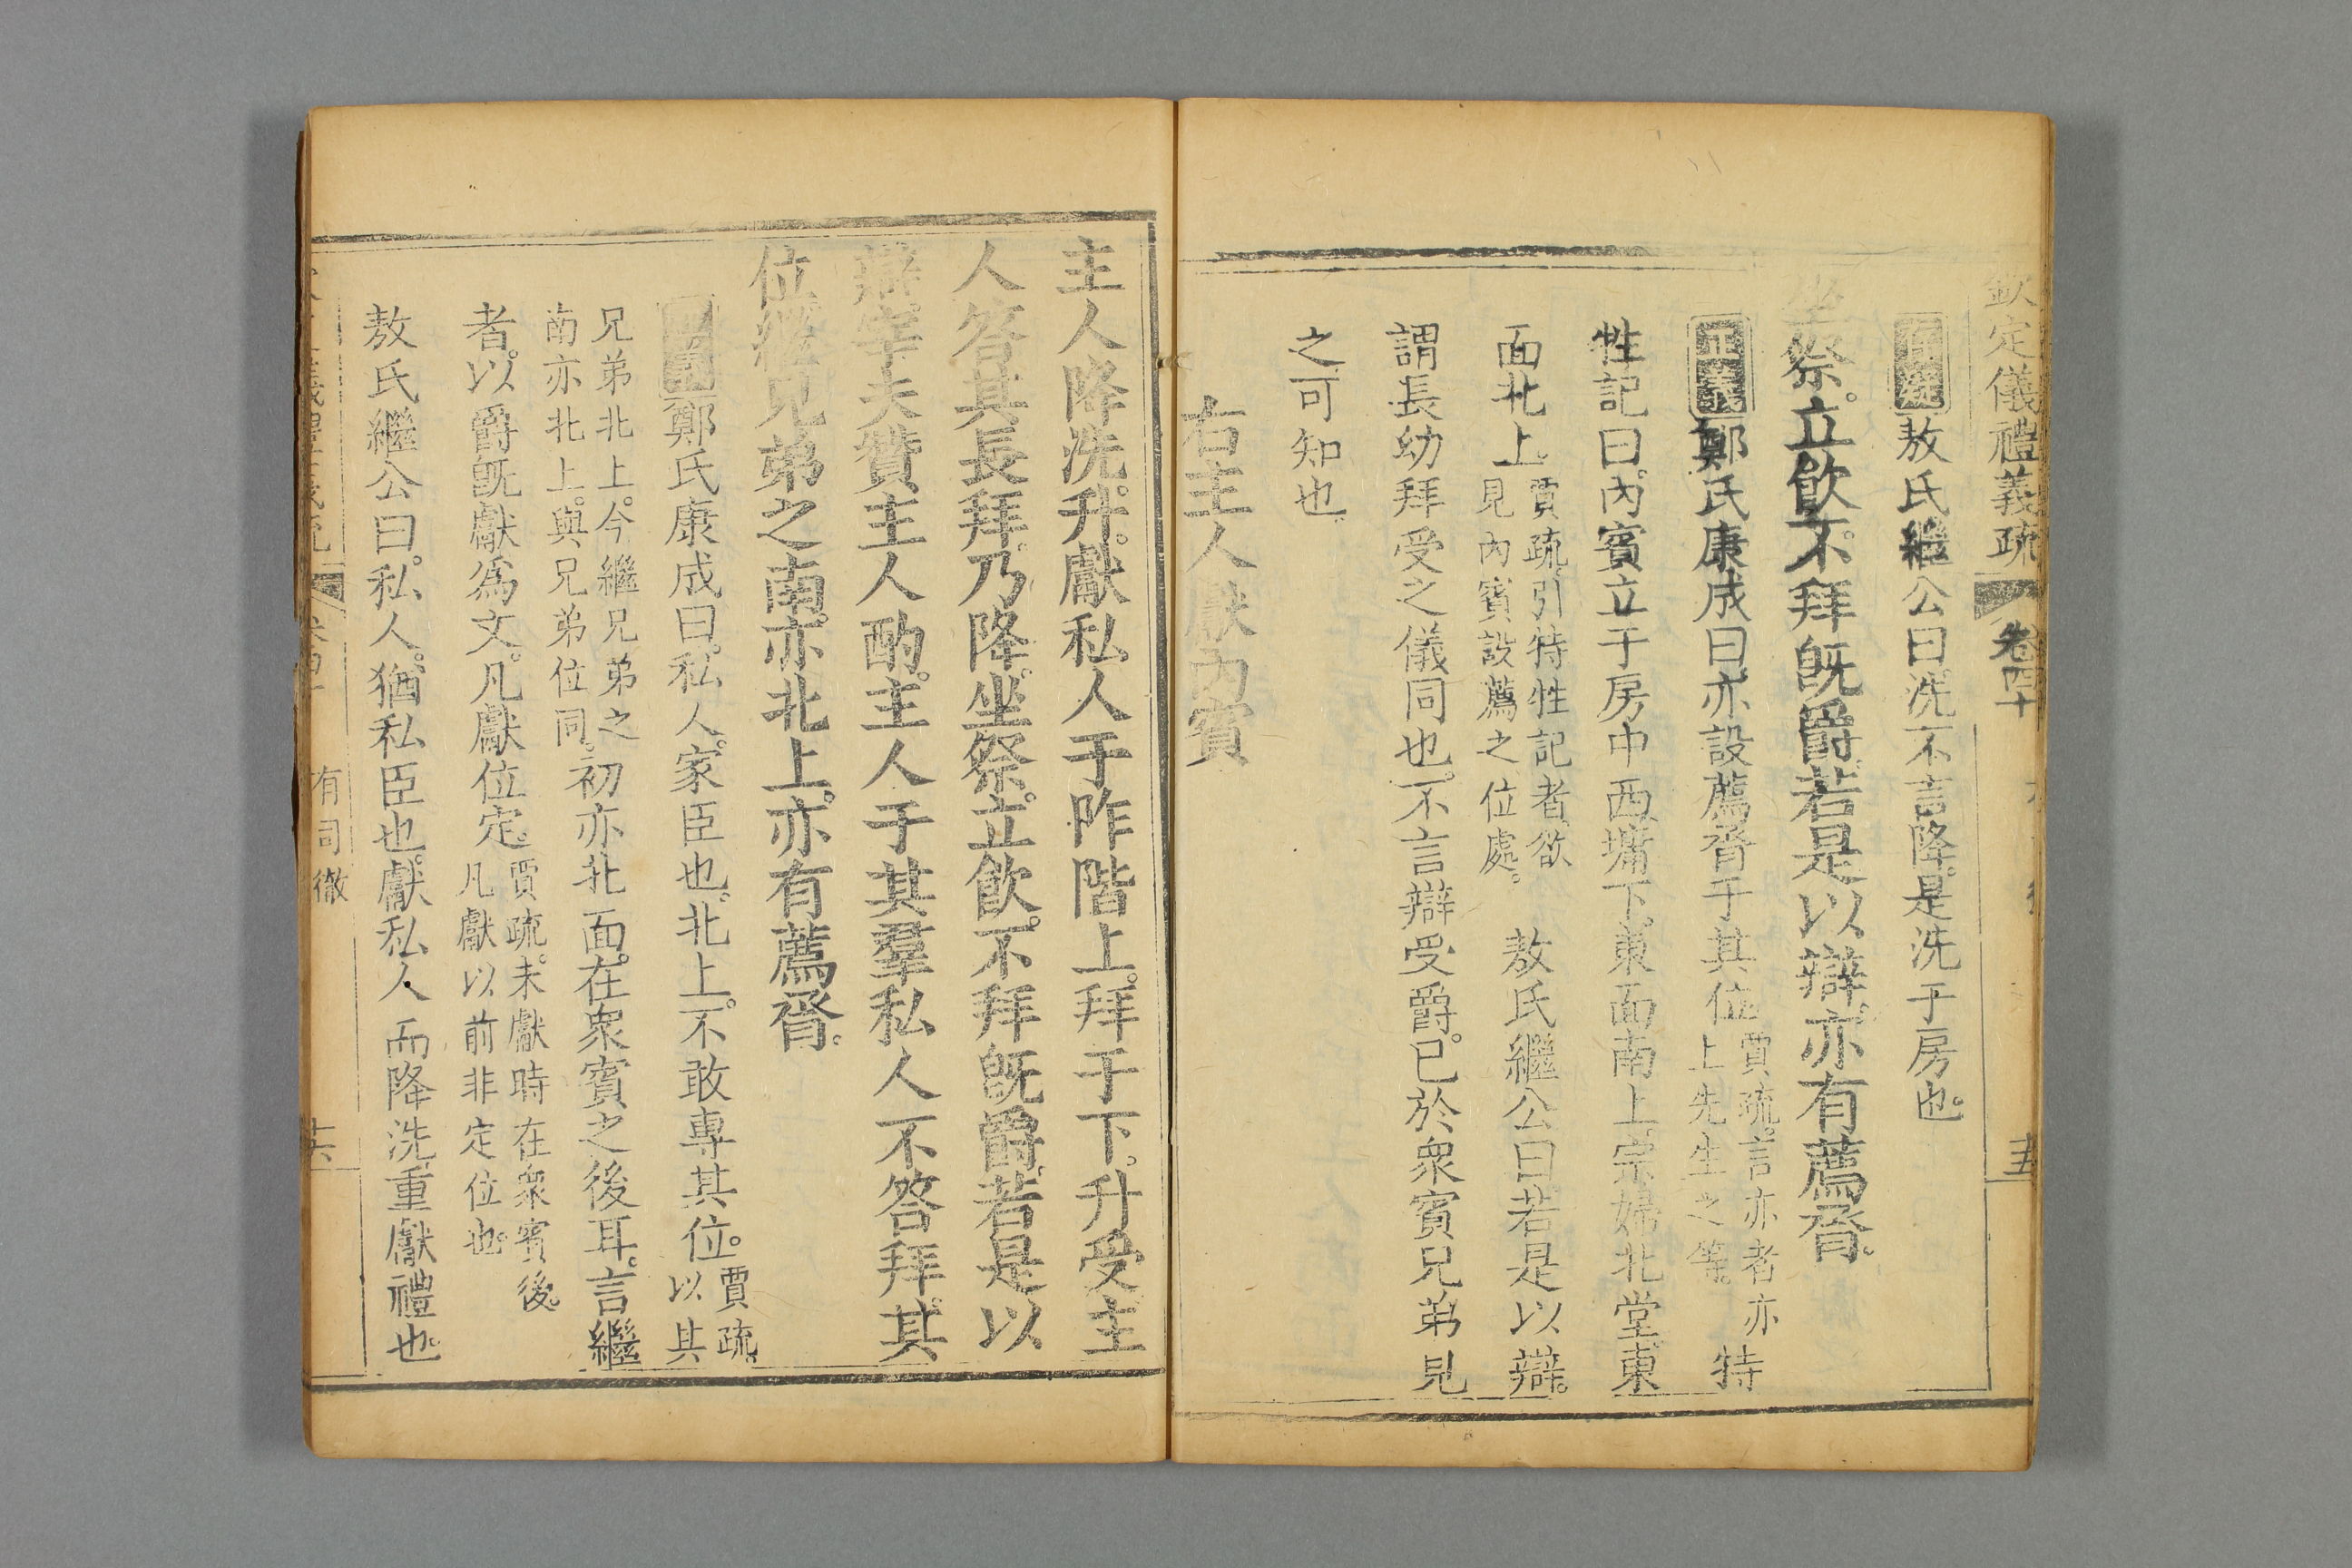 欽定儀禮義疏 卷四十
存疑敖氏繼公曰洗不言降是洗于房也
坐祭立飲不拜既爵若是以辯亦有薦脀
正義鄭氏康成曰亦設薦脀于其位賈疏言亦者亦上先生之等特
牲記曰內賓立于房中西墉下東面南上宗婦北堂東
面北上賈疏引特牲記者欲見內賓設薦之位處 敖氏繼公曰若是以辯
謂長幼拜受之儀同也不言辯受爵已於衆賓兄弟見
之可知也
右主人獻內賓
主人降洗升獻私人于阼階上拜于下升受主
人答其長拜乃降坐祭立飲不拜既爵若是以
辯宰夫贊主人酌主人于其羣私人不答拜其
位繼兄弟之南亦北上亦有薦脀
正義鄭氏康成曰私人家臣也北上不敢專其位賈疏以其
兄弟北上今繼兄弟之南亦北上與兄弟位同初亦北面在衆賓之後耳言繼
者以爵既獻爲文凡獻位定賈疏未獻時在衆賓後凡獻以前非定位也
敖氏繼公曰私人猶私臣也獻私人而降洗重獻禮也
有司徹 十六